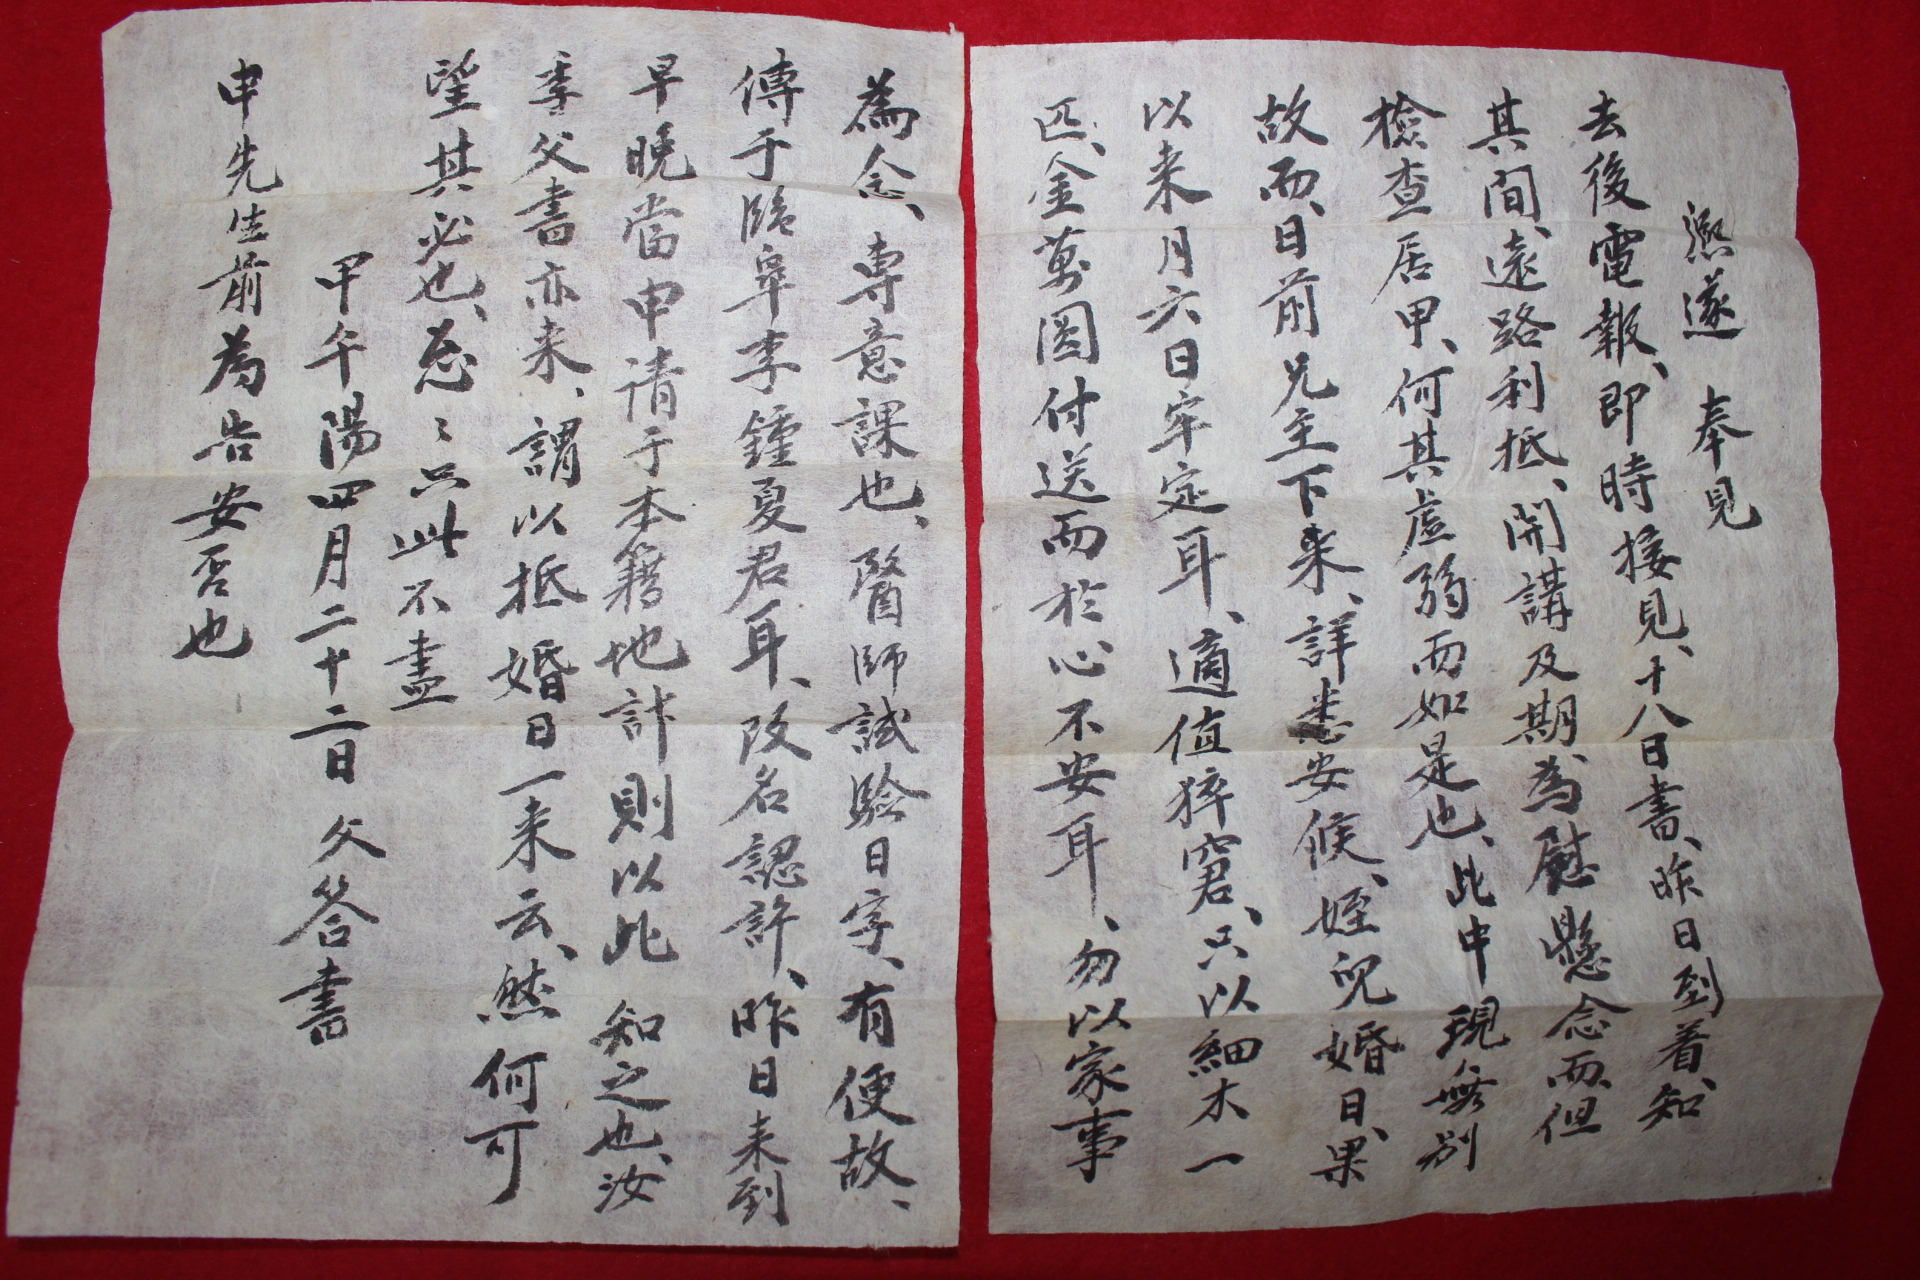 熙遂 奉見
去後電報、即時接見、十八日書、昨日到着、知
其間、遠路利抵、開講及期、為慰懸念而、但
檢查居甲、何其虛弱而如是也、此中現無別
故而、日前兄主下来、詳悉安候、姪兒婚日、果
以来月六日牢定耳、適值猝窘、只以細木一
匹、金萬圓付送而於心不安耳、勿以家事
為念、専意課也、醫師試驗日字、有便故、
傳于臨皐李鍾夏君耳、改名認許、昨日来到
早晚當申请于本籍地計則以此 知之也、汝
季父書亦来、謂以抵婚日一来云、然何可
望其必也、忩〻只此不盡
甲午陽四月二十二日 父答書
申先生前為告安否也